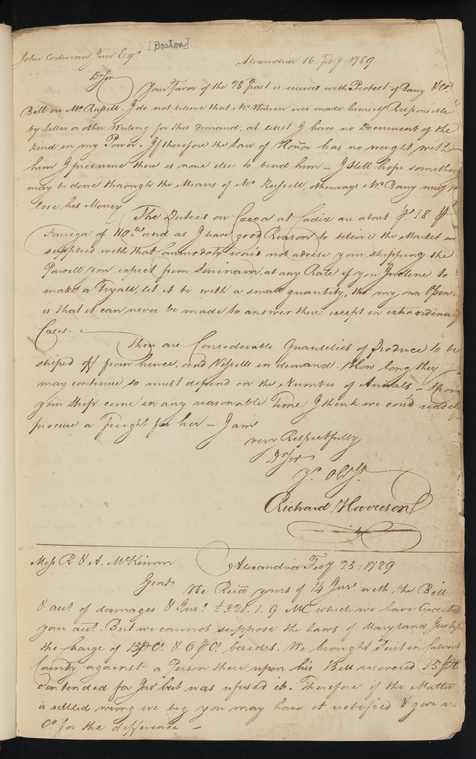 [Boston]
John Codman Junr Esqr Alexandria 16 Feby 1789
Dr Sir
Your Favor of the 28 past is received with Protest of Bang &Co
Bill on Mr Russell. I do not believe that Mr has made himself Responsible
by Letter or other Writing for this demand, at least I have no Document of the
kind in my Power. If therefore the Law of Honor has no weight with
him I presume there is none else to bind him – I still hope something
may be done through the Means of Mr Russell, otherways Mr Bang may
lose his Money
The Duties on Cocoa at Cadiz are about 18
Fanega of 110 and as I have good Reason to believe the Market
supplied with that Commodity wou'd not advise your shipping the
Parcell you expect from Surinam, at any Rate if you incline to
make a Tryall, let it be with a small quantity, tho my own Opinion
is that it can never be made to answer there except in extraordinary
Cases.
There are Considerable Quantities of Produce to be
shiped off from hence, and Vessells in demand. How long they
may continue so must depend on the Number of Arrivals –
your Ship come in any reasonable Time I think we cou'd readily
procure a Freight for her – I am
very Respectfully
Dr Sir
Yr Obt St
Richard Harrison
Messrs R & A. McKinnon Alexandria Feby 23. 1789
Gent
We Recd yours of 14 Jany with the Bill
& acct of damages & Inst £328.1.9 MC which we have
your acct. But we cannot suppose the Laws of Maryland
the charge of 15 PCt & 6 PCt besides. We brought Suit in
County against a Person there upon his Bill recovered 15 PCt
contended for Inst but was refused it. Therefore if the Matter
is settled wrong we beg you may have it rectified & give us
Cr for the difference –